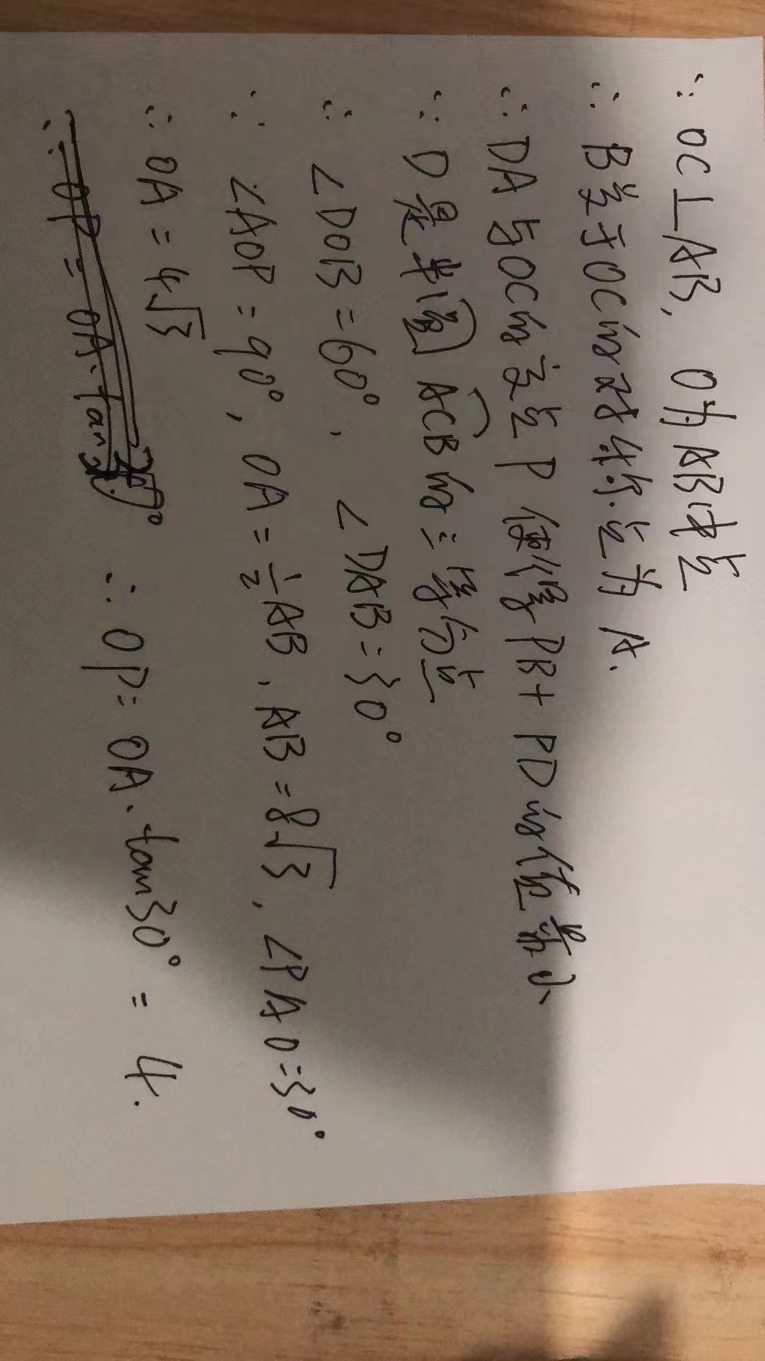 ∵ OC⊥AB, O为AB中点
∴ B关于OC的对称点为A.
∴ DA与OC的交点P使得PB+PD的值最小
∵ D是半圆ACB的三等分点
∴ ∠DOB=60°, ∠DAB=30°
∵ ∠AOP=90°, OA=½AB, AB=8√3, ∠PAO=30°
∴ OA=4√3
∴ OP=OA·tan30° ∴ OP=OA·tan30°=4.